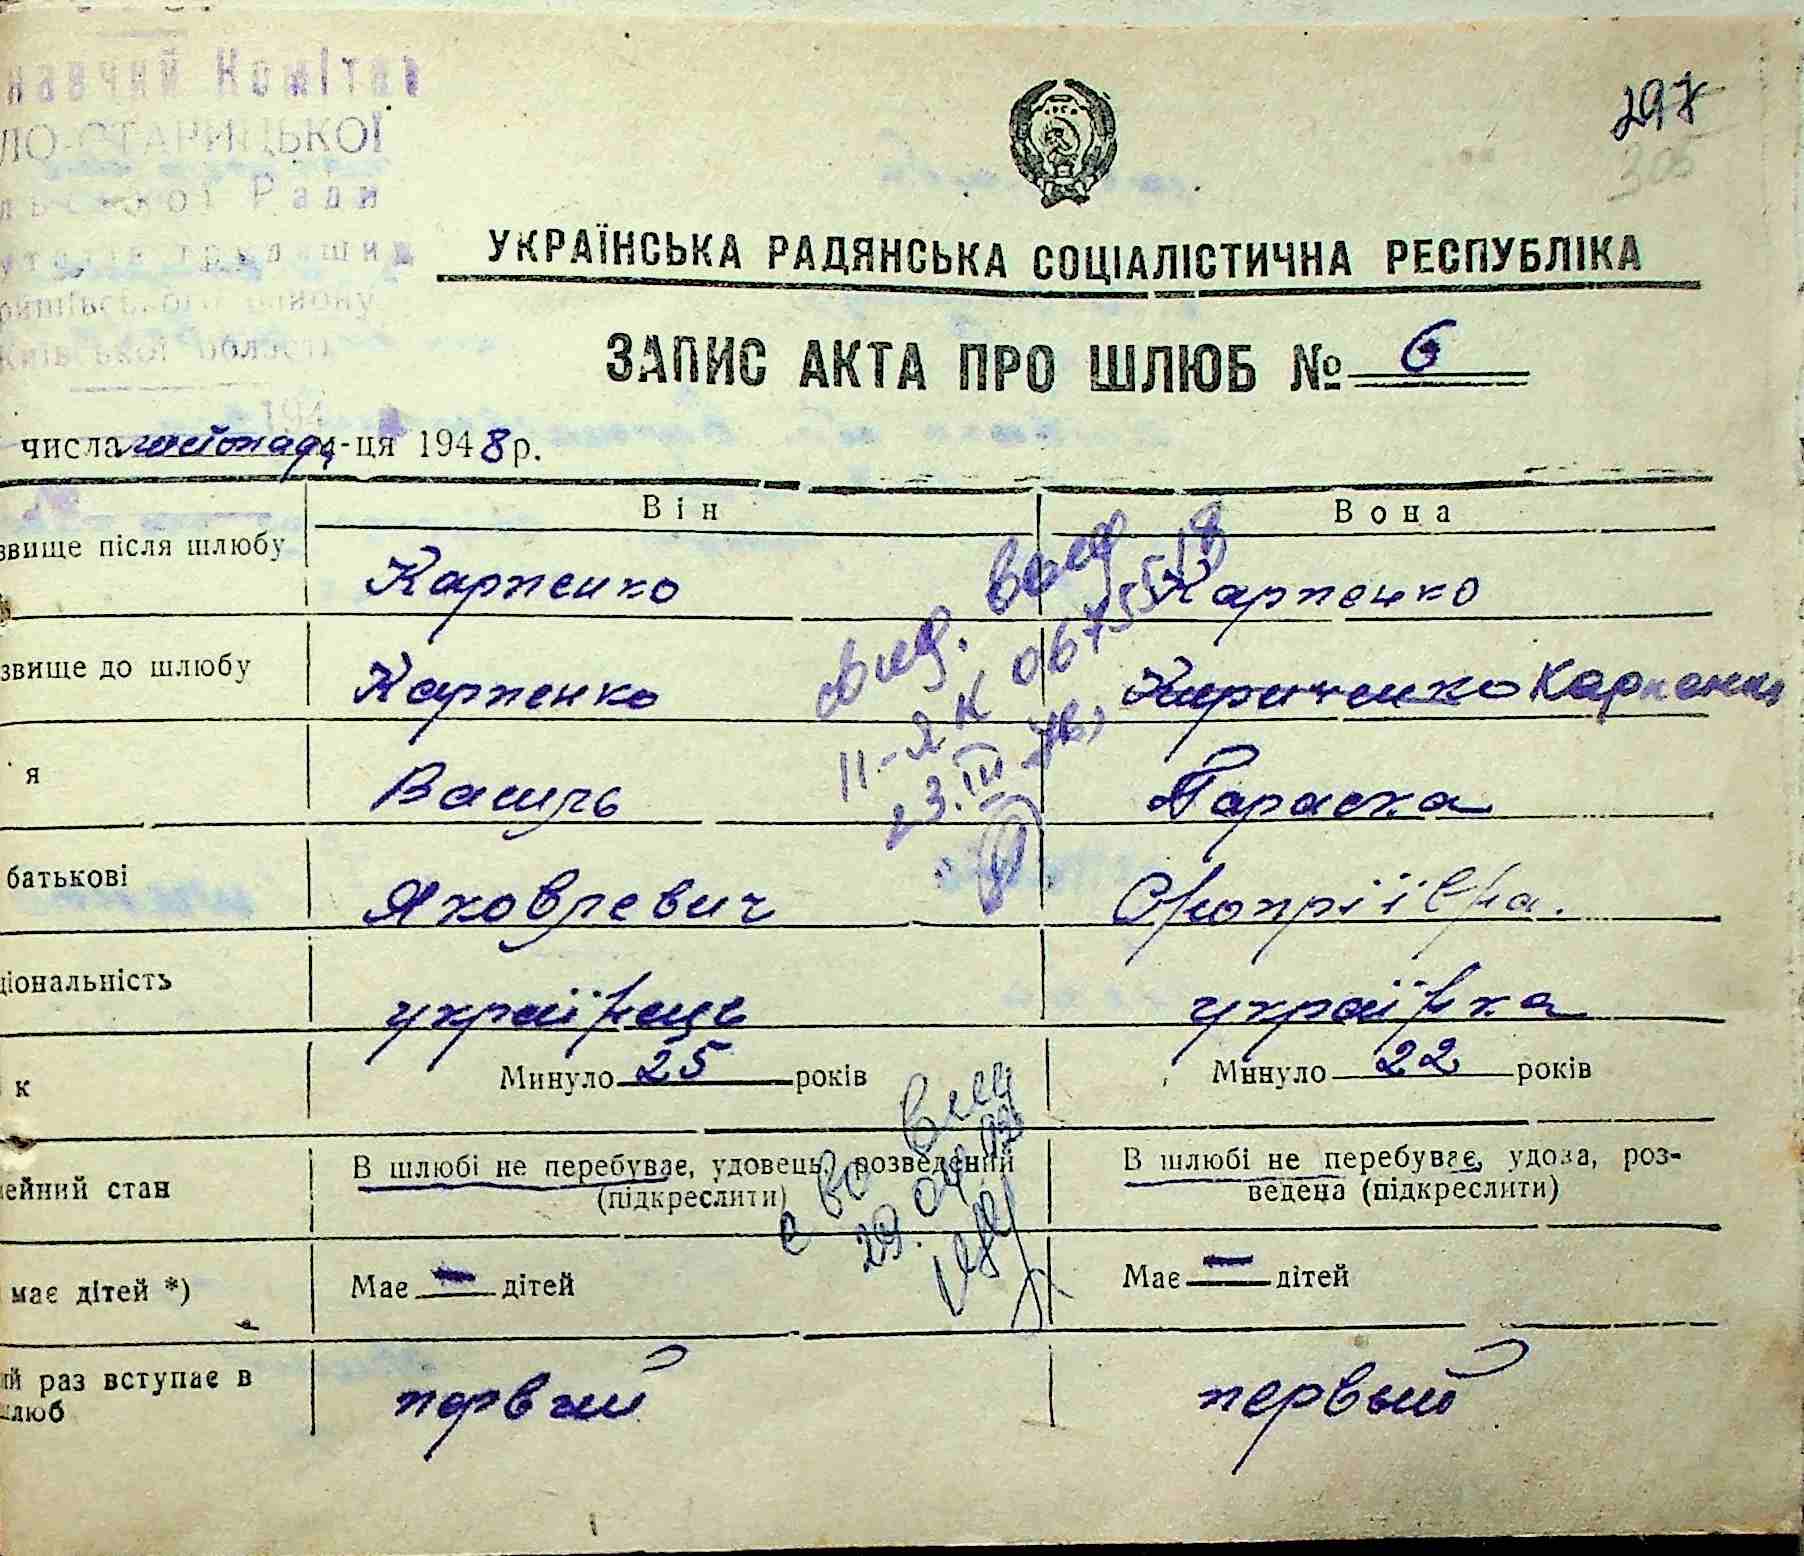 навчий Комітет
ЛО-СТАРИЦЬКОЇ
льської Ради
утатів трудящих
ришівського району
Київської області
194
297
305
УКРАЇНСЬКА РАДЯНСЬКА СОЦІАЛІСТИЧНА РЕСПУБЛІКА
ЗАПИС АКТА ПРО ШЛЮБ № 6
числа листопада-ця 1948 р.
Він Вона
звище після шлюбу Карпенко Карпенко
звище до шлюбу Карпенко Кириченко Карпенко
я Василь Параска
батькові Яковлевич
ціональність українець українка
к Минуло 25 років Минуло 22 років
мейний стан В шлюбі не перебуває, удовець, розведений (підкреслити) В шлюбі не перебуває, удова, роз-
ведена (підкреслити)
має дітей *) Має — дітей Має — дітей
ий раз вступає в первый первый
шлюб
II-ЯК 067
23.III
29.04.